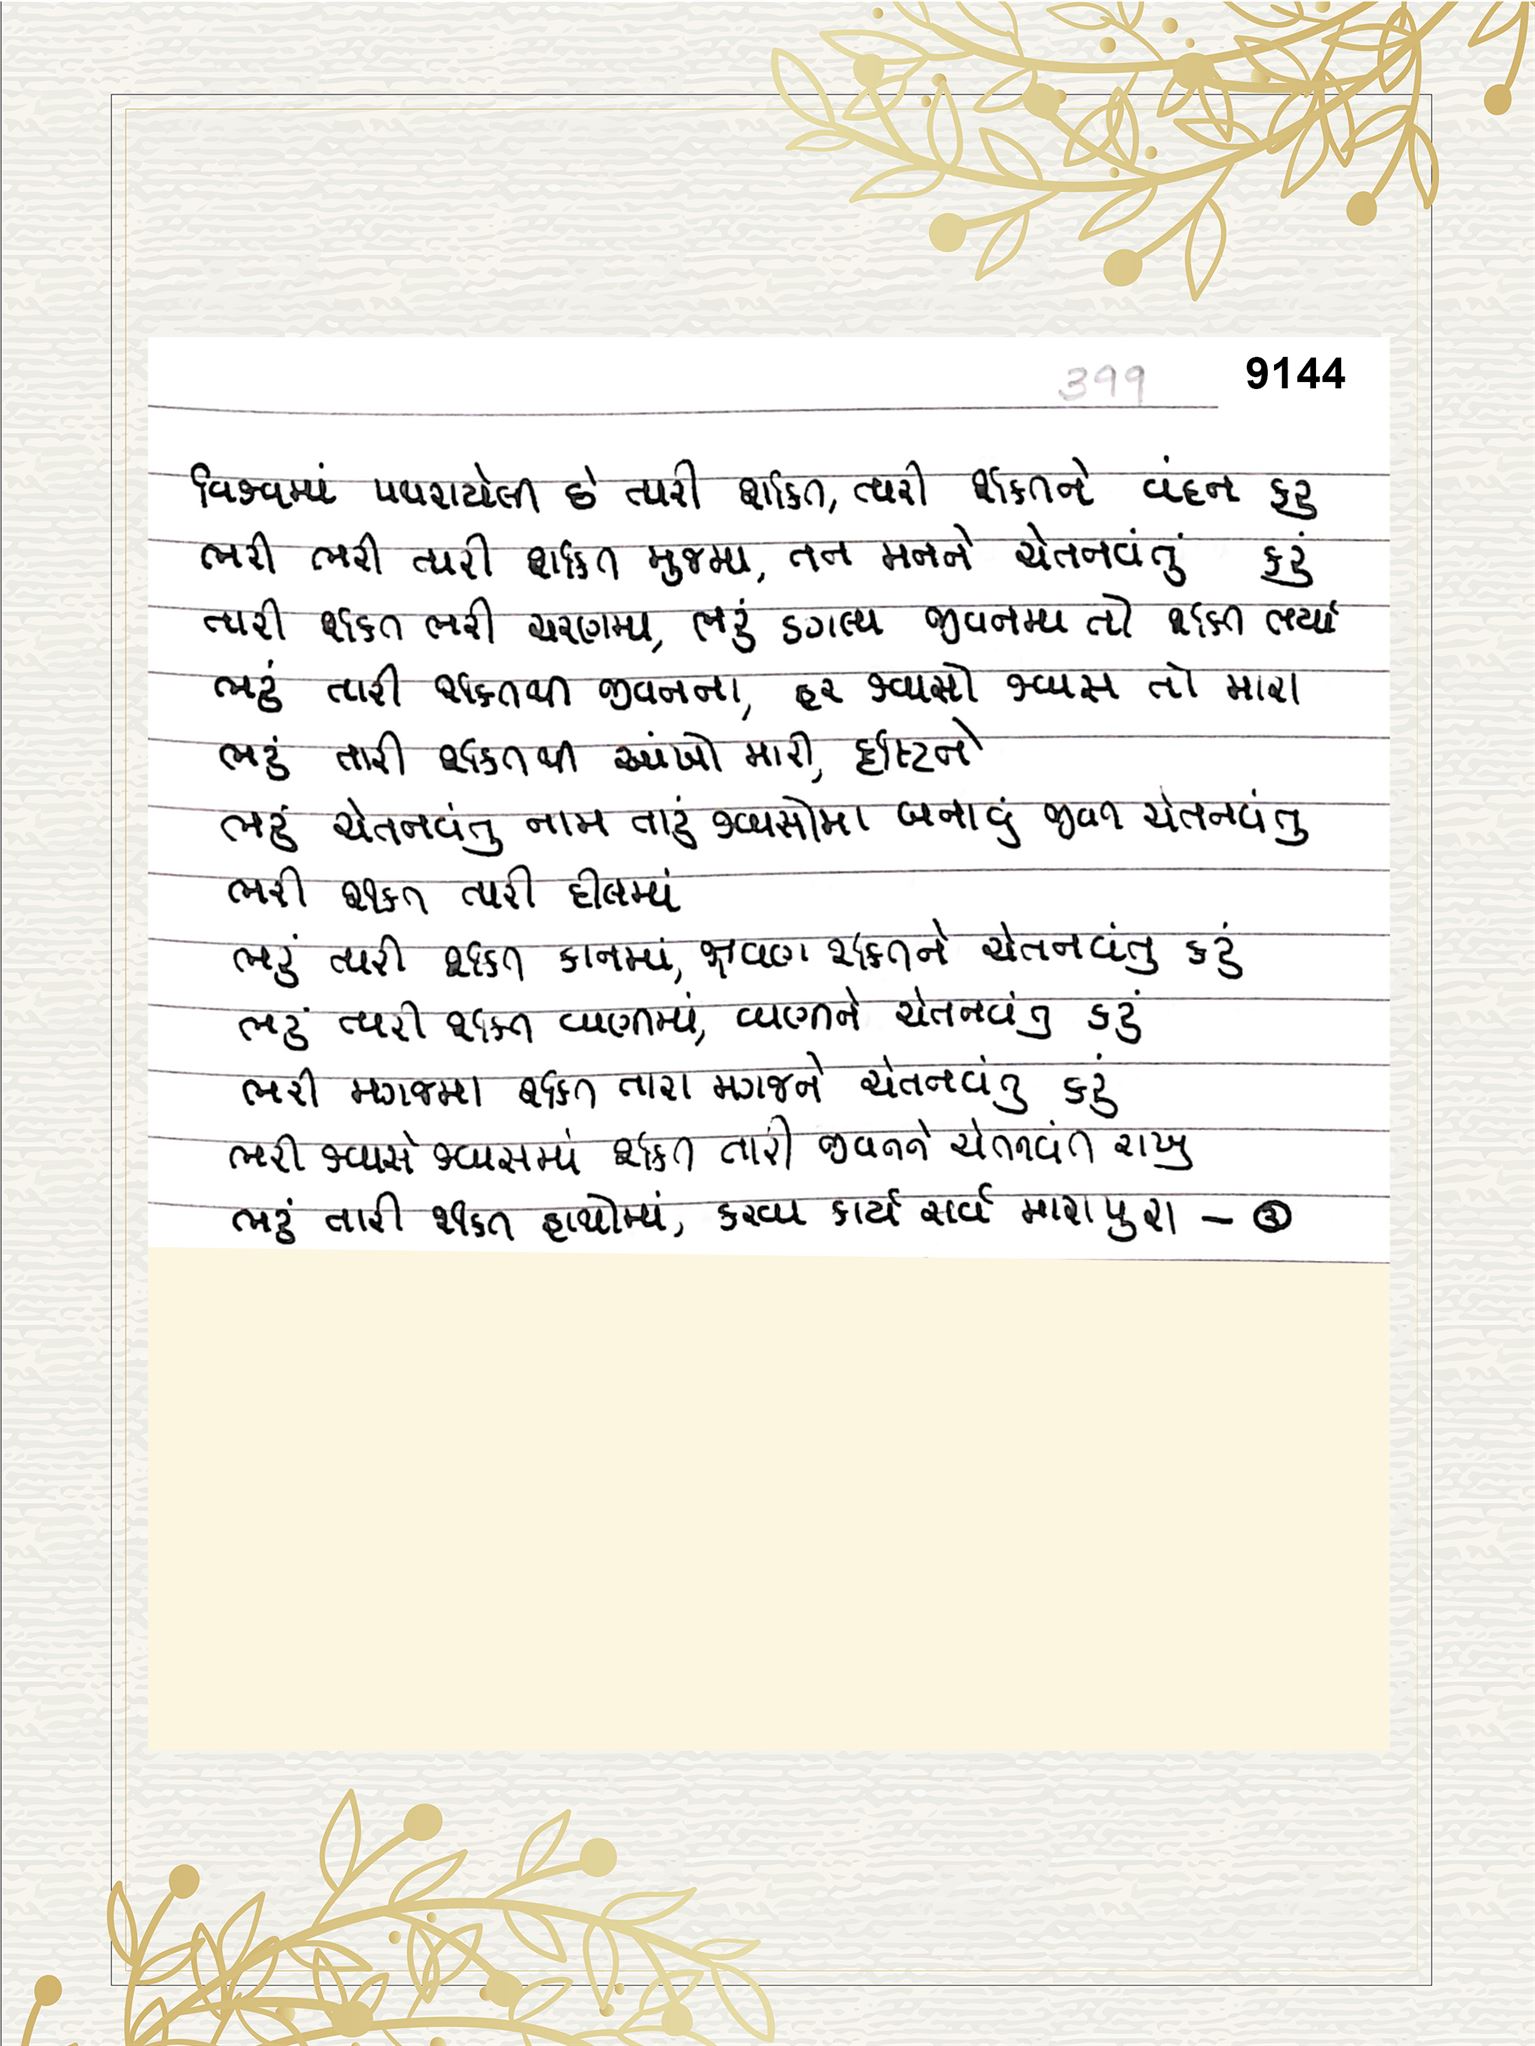 399 9144
વિશ્વમાં પથરાયેલી છે તારી શક્તિ, તારી શક્તિને વંદન કરુ
ભરી ભરી તારી શક્તિ મુજમા, તન મનને ચેતનવંતું કરું
તારી શક્તિ ભરી ચરણમા, ભરું ડગલા જીવનમા તો શક્તિ ભર્યા
ભરું તારી શક્તિથી જીવનના, હર શ્વાસો શ્વાસ તો મારા
ભરું તારી શક્તિથી આંખો મારી, દૃષ્ટિને
ભરું ચેતનવંતુ નામ તારું શ્વાસોમા બનાવું જીવન ચેતનવંતુ
ભરી શક્તિ તારી દીલમાં
ભરું તારી શક્તિ કાનમાં, શ્રવણ શક્તિને ચેતનવંતુ કરું
ભરું તારી શક્તિ વાણીમાં, વાણીને ચેતનવંતુ કરું
ભરી મગજમા શક્તિ તારા મગજને ચેતનવંતુ કરું
ભરી શ્વાસે શ્વાસમાં શક્તિ તારી જીવનને ચેતનવંત રાખુ
ભરું તારી શક્તિ હાથોમાં, કરવા કાર્ય સર્વ મારા પુરા - ③